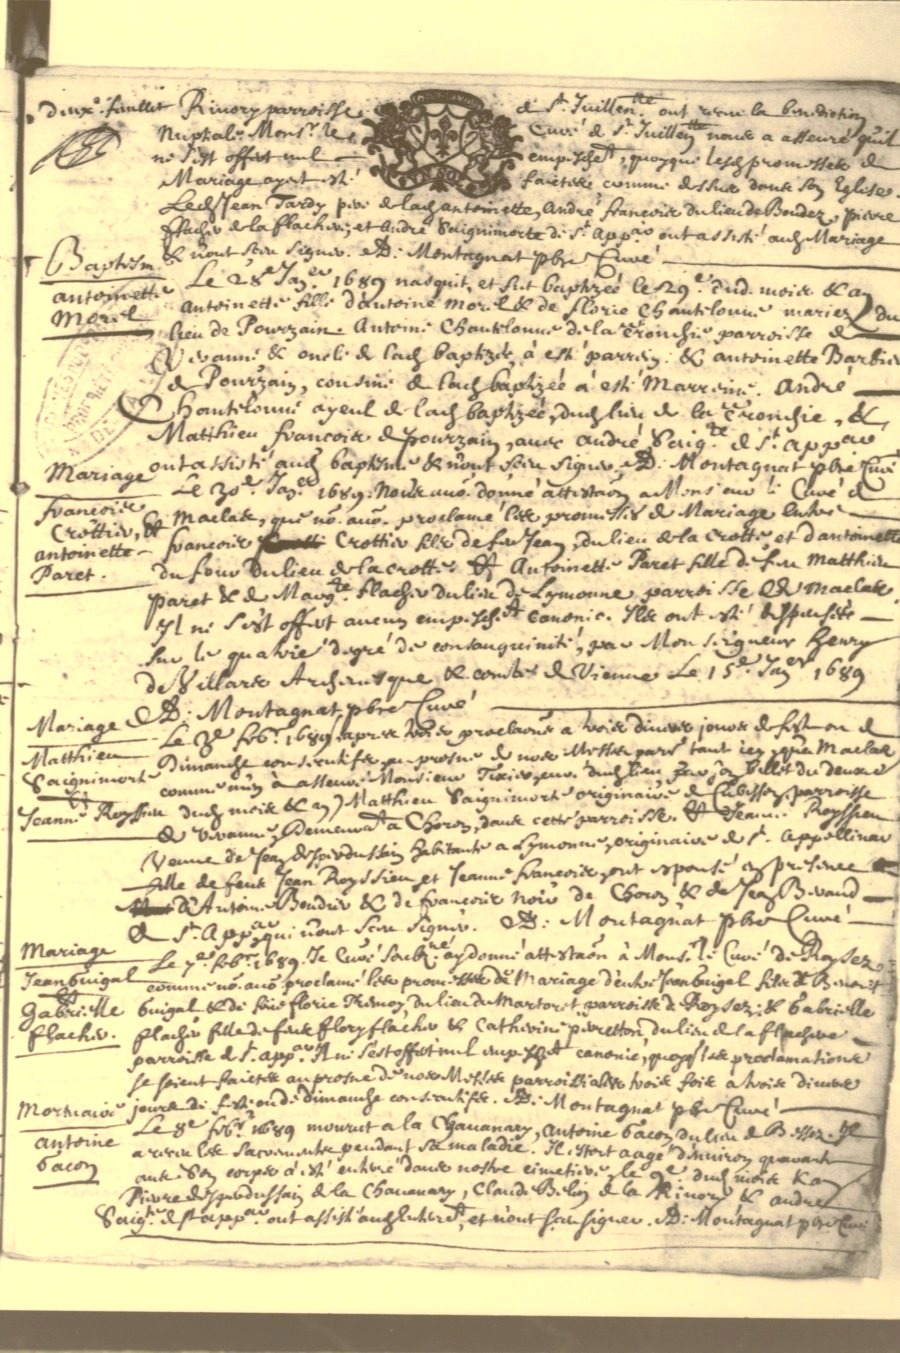 deux.e feuillet Rivory parroisse de St Juillen ont receu la benediction
Nuptiale Mons.r le Curé de St Juillen nous a asseuré qu'il
ne s'est offert nul empesche.t, quoyque lesd. promesses de
Mariage ayent esté faictes comme dessus dans son Eglise.
Led. Jean Tardy pere de lad. antoinette, André françois du lieu de Boudez, pierre
flachier de la flachere, et André Saignimorte de St App.ar ont assisté aud. Mariage
& n'ont sceu signer. D: Montagnat pbre Curé
Baptesm.
antoinette
Morel
Le 28e Ja.er 1689 nasquit, et fut baptizée le 29.e dud. mois & an
Antoinette fille d'antoine Morel & de florie Chantelonne mariez du
lieu de Pourzain. Antoine Chantelonne de la Tronchie parroisse de
Veranne & oncle de lad. baptizée à esté parrein. & antoinette Barbier
de Pourzain, cousine de lad. baptizée à esté Marreine. André
Chantelonne ayeul de lad. baptizée, dud. lieu de la Tronchie, &
Matthieu françois de pourzain, avec andré Saig.te de St app.ar
ont assisté aud. baptesme & n'ont sceu signer. D: Montagnat pbre Curé
Mariage
françois
Crottier, &
antoinette
Paret.
Le 30.e Ja.er 1689. Nous avo. donné attestaon a Monsieur le Curé de
Maclas, que no. avo. proclamé les promesses de Mariage entre
françois Crottier fils de feu Jean, du lieu de la Crotte et d'antoinette
du four du lieu de la crotte. Et Antoinette Paret fille de feu Matthieu
paret & de Marg.te flachier du lieu de Lymonne parroisse de Maclas.
Yl ne s'est offert aucun empesche.t canonic. Ils ont esté dispensés
sur le quatrié. degré de consanguinité, par Monseigneur Henry
de Villars Archevesque & comte de Vienne Le 15.e Ja.er 1689
D: Montagnat pbre Curé
Mariage
Matthieu
Saignimorte
&
Jeanne Royssieu
Le 3e feb.r 1689, apres trois proclaons a trois divers jours de feste ou de
dimanche consecutifs au prosne de nos Messes parr. tant icy, qu'a Maclas
comme m'en à asseuré Monsieur Tixier, curé dud. lieu par son billet du deux.e
dud. mois & an, Matthieu Saignimorte originaire de Cubisson, parroisse
de Veranne, Demeura.t a Choron, dans cette parroisse. Et Jeanne Royssieu
Veuve de Jean Despordussain habitante a Lymonne, originaire de St Appellinar
fille de feus Jean Royssieu, et Jeanne françois, ont epousé en presence
d'Antoine Boudrier & de françois noir de Choron & de Jean Beraud
de St App.ar qui n'ont sceu signer. D: Montagnat pbre Curé
Mariage
Jean Guigal
&
Gabrielle
flachier.
Le 7.e feb.r 1689. Je Curé soubz.né ay donné attestaon à Mons.r le Curé de Roysez
comme no. avo. proclamé les promesses de Mariage d'entre Jean Guigal fils de Benoit
Guigal & de feüe florie Tremoy du lieu du Martoret parroisse de Roysez; & Gabrielle
flachier fille de feus flory flachier & Catherine pievetton, du lieu de la flachere
parroisse de St app.ar Il ne s'est offert nul empesche.t canonic, quoyq. les proclamations
se soient faictes au prosne de nos Messes parroissiales trois fois a trois divers
jours de feste ou de dimanche consecutifs. D: Montagnat pbre Curé
Mortuaire
antoine
Gacon
Le 8e feb.r 1689 mourut a la Chavanary, Antoine Gacon du lieu de Bessey. Il
a receu les sacrements pendant sa maladie. Il estoit aagé d'environ quarante
ans. Son corps à esté enterré dans nostre cimetiere, le 9e dud. mois & an
Pierre Despordussain de la Chavanary, Claude Belin de la Rivory & andré
Saig.te de St app.ar ont assisté aud. Enterre.t, et n'ont sceu signer. D: Montagnat pbre Curé